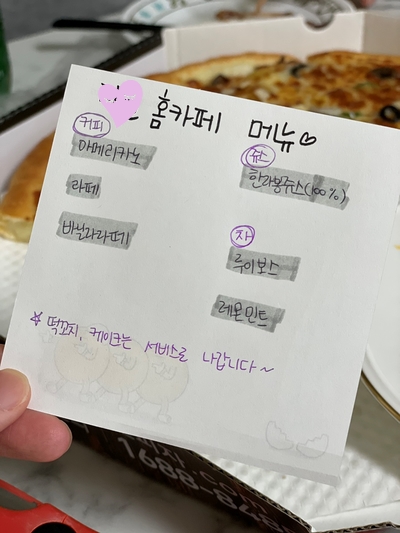 홈카페 메뉴♡
커피
아메리카노
라떼
바닐라라떼
쥬스
한라봉쥬스(100%)
차
루이보스
레몬민트
☆ 떡꼬지, 케이크는 서비스로 나갑니다~
.com
1688-848